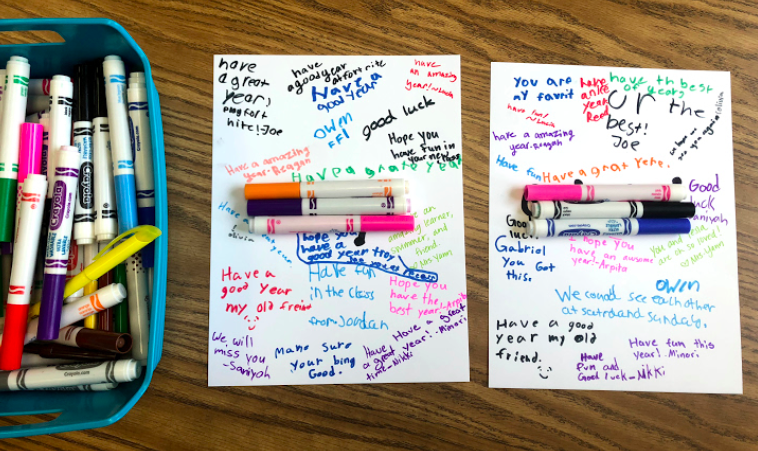 have
a great
year,
hite!-Joe
have
a good year
at fort nite
Have a
good year
have
an amazing
year!
OWM
FFI
good luck
Hope you
have fun in
your new
Have a amazing
year-Reagan
Have a great year
hope you
have a
good year Troy
Have a
good year
my old freind
Have fun
in the class
from-Jordan
an
learner,
swimmer, and
friend.
Hope you
have the
best year!-Arpita
We will
miss you
-Saniyah
Make sure
your bing
Good.
Have
a great
time-Nikki
Have a great
year!-Minori
Crayola
Crayola
You are
my favrit
have th best
of years
have
year
Reed
or the
best!
Joe
have a amazing
year-Reagan
Have fun
Have a grat Yehe.
Good
luck
Good
luck
Gabriel
You Got
this.
I hope you
have an awsome
year-Arpita
You and
OWM
We coud see eachother
at
Have a good
year my old
friend.
Have
fun and
Good luck-Nikki
Have fun this
year! Minori